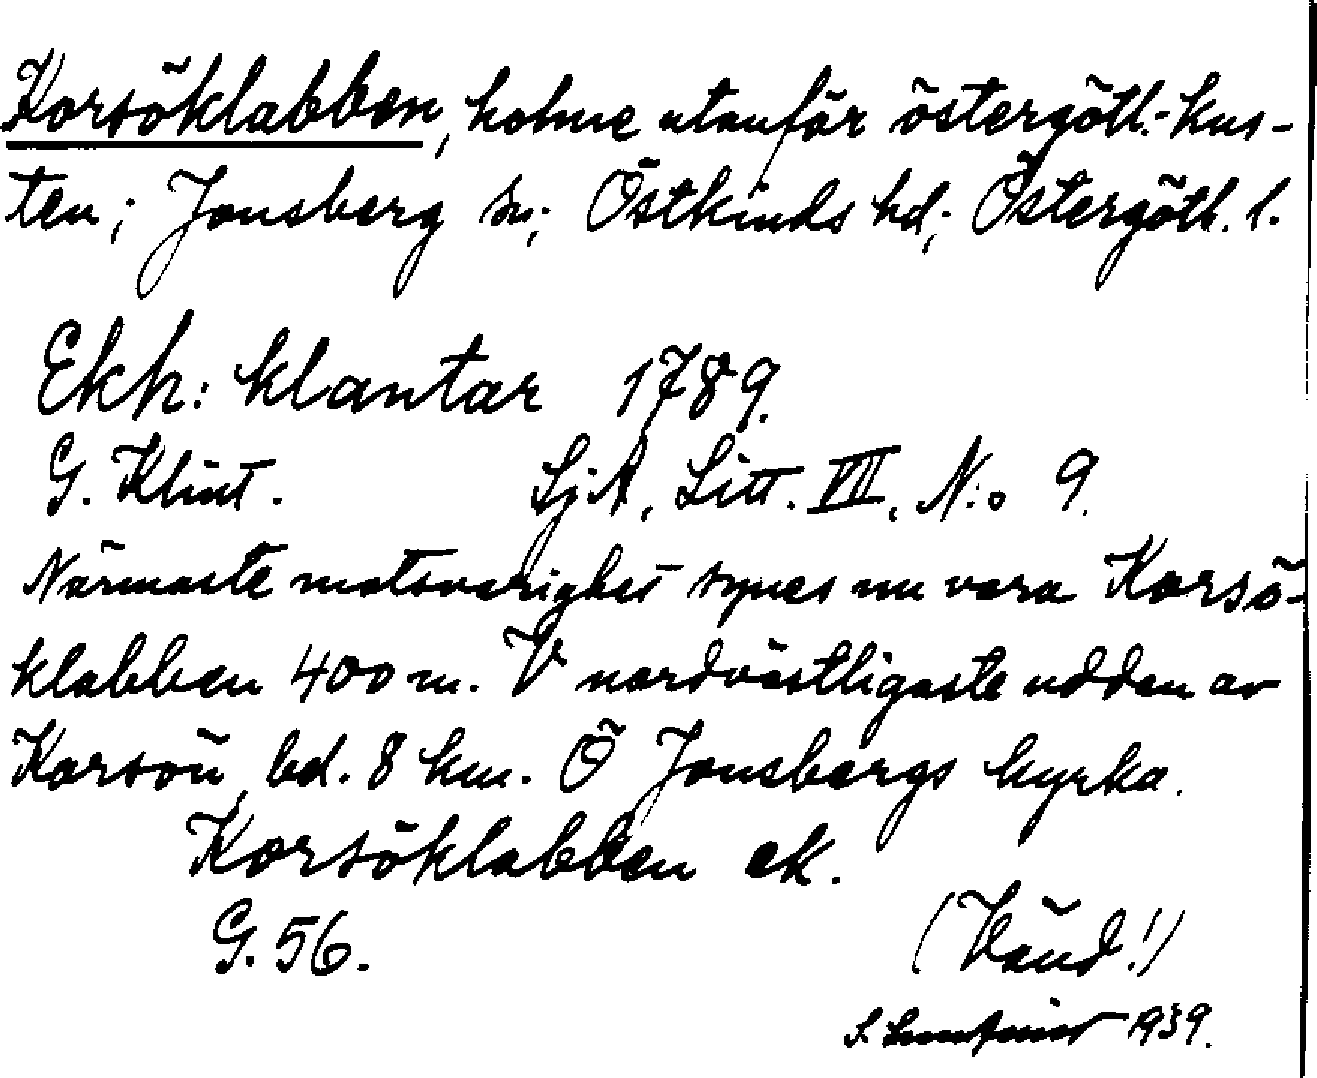 Korsöklabben, holme utanför östergötl.-kus-
ten; Jonsberg sn; Östkinds hd; Östergötl. l.
Ekh: klantar 1789.
G. Klint. SjA, Litt. VII, N:o 9.
Närmaste motsvarighet synes nu vara Korsö-
klabben 400 m. V nordvästligaste udden av
Korsön, bd. 8 km. Ö Jonsbergs kyrka.
Korsöklabben ek.
G. 56.
(Vänd!)
S. 1939.